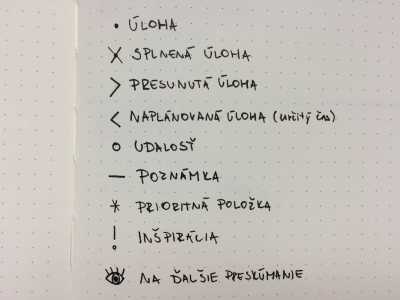 • ÚLOHA
X SPLNENÁ ÚLOHA
> PRESUNUTÁ ÚLOHA
< NAPLÁNOVANÁ ÚLOHA (určitý čas)
o UDALOSŤ
— POZNÁMKA
* PRIORITNÁ POLOŽKA
! INŠPIRÁCIA
NA ĎALŠIE PRESKÚMANIE